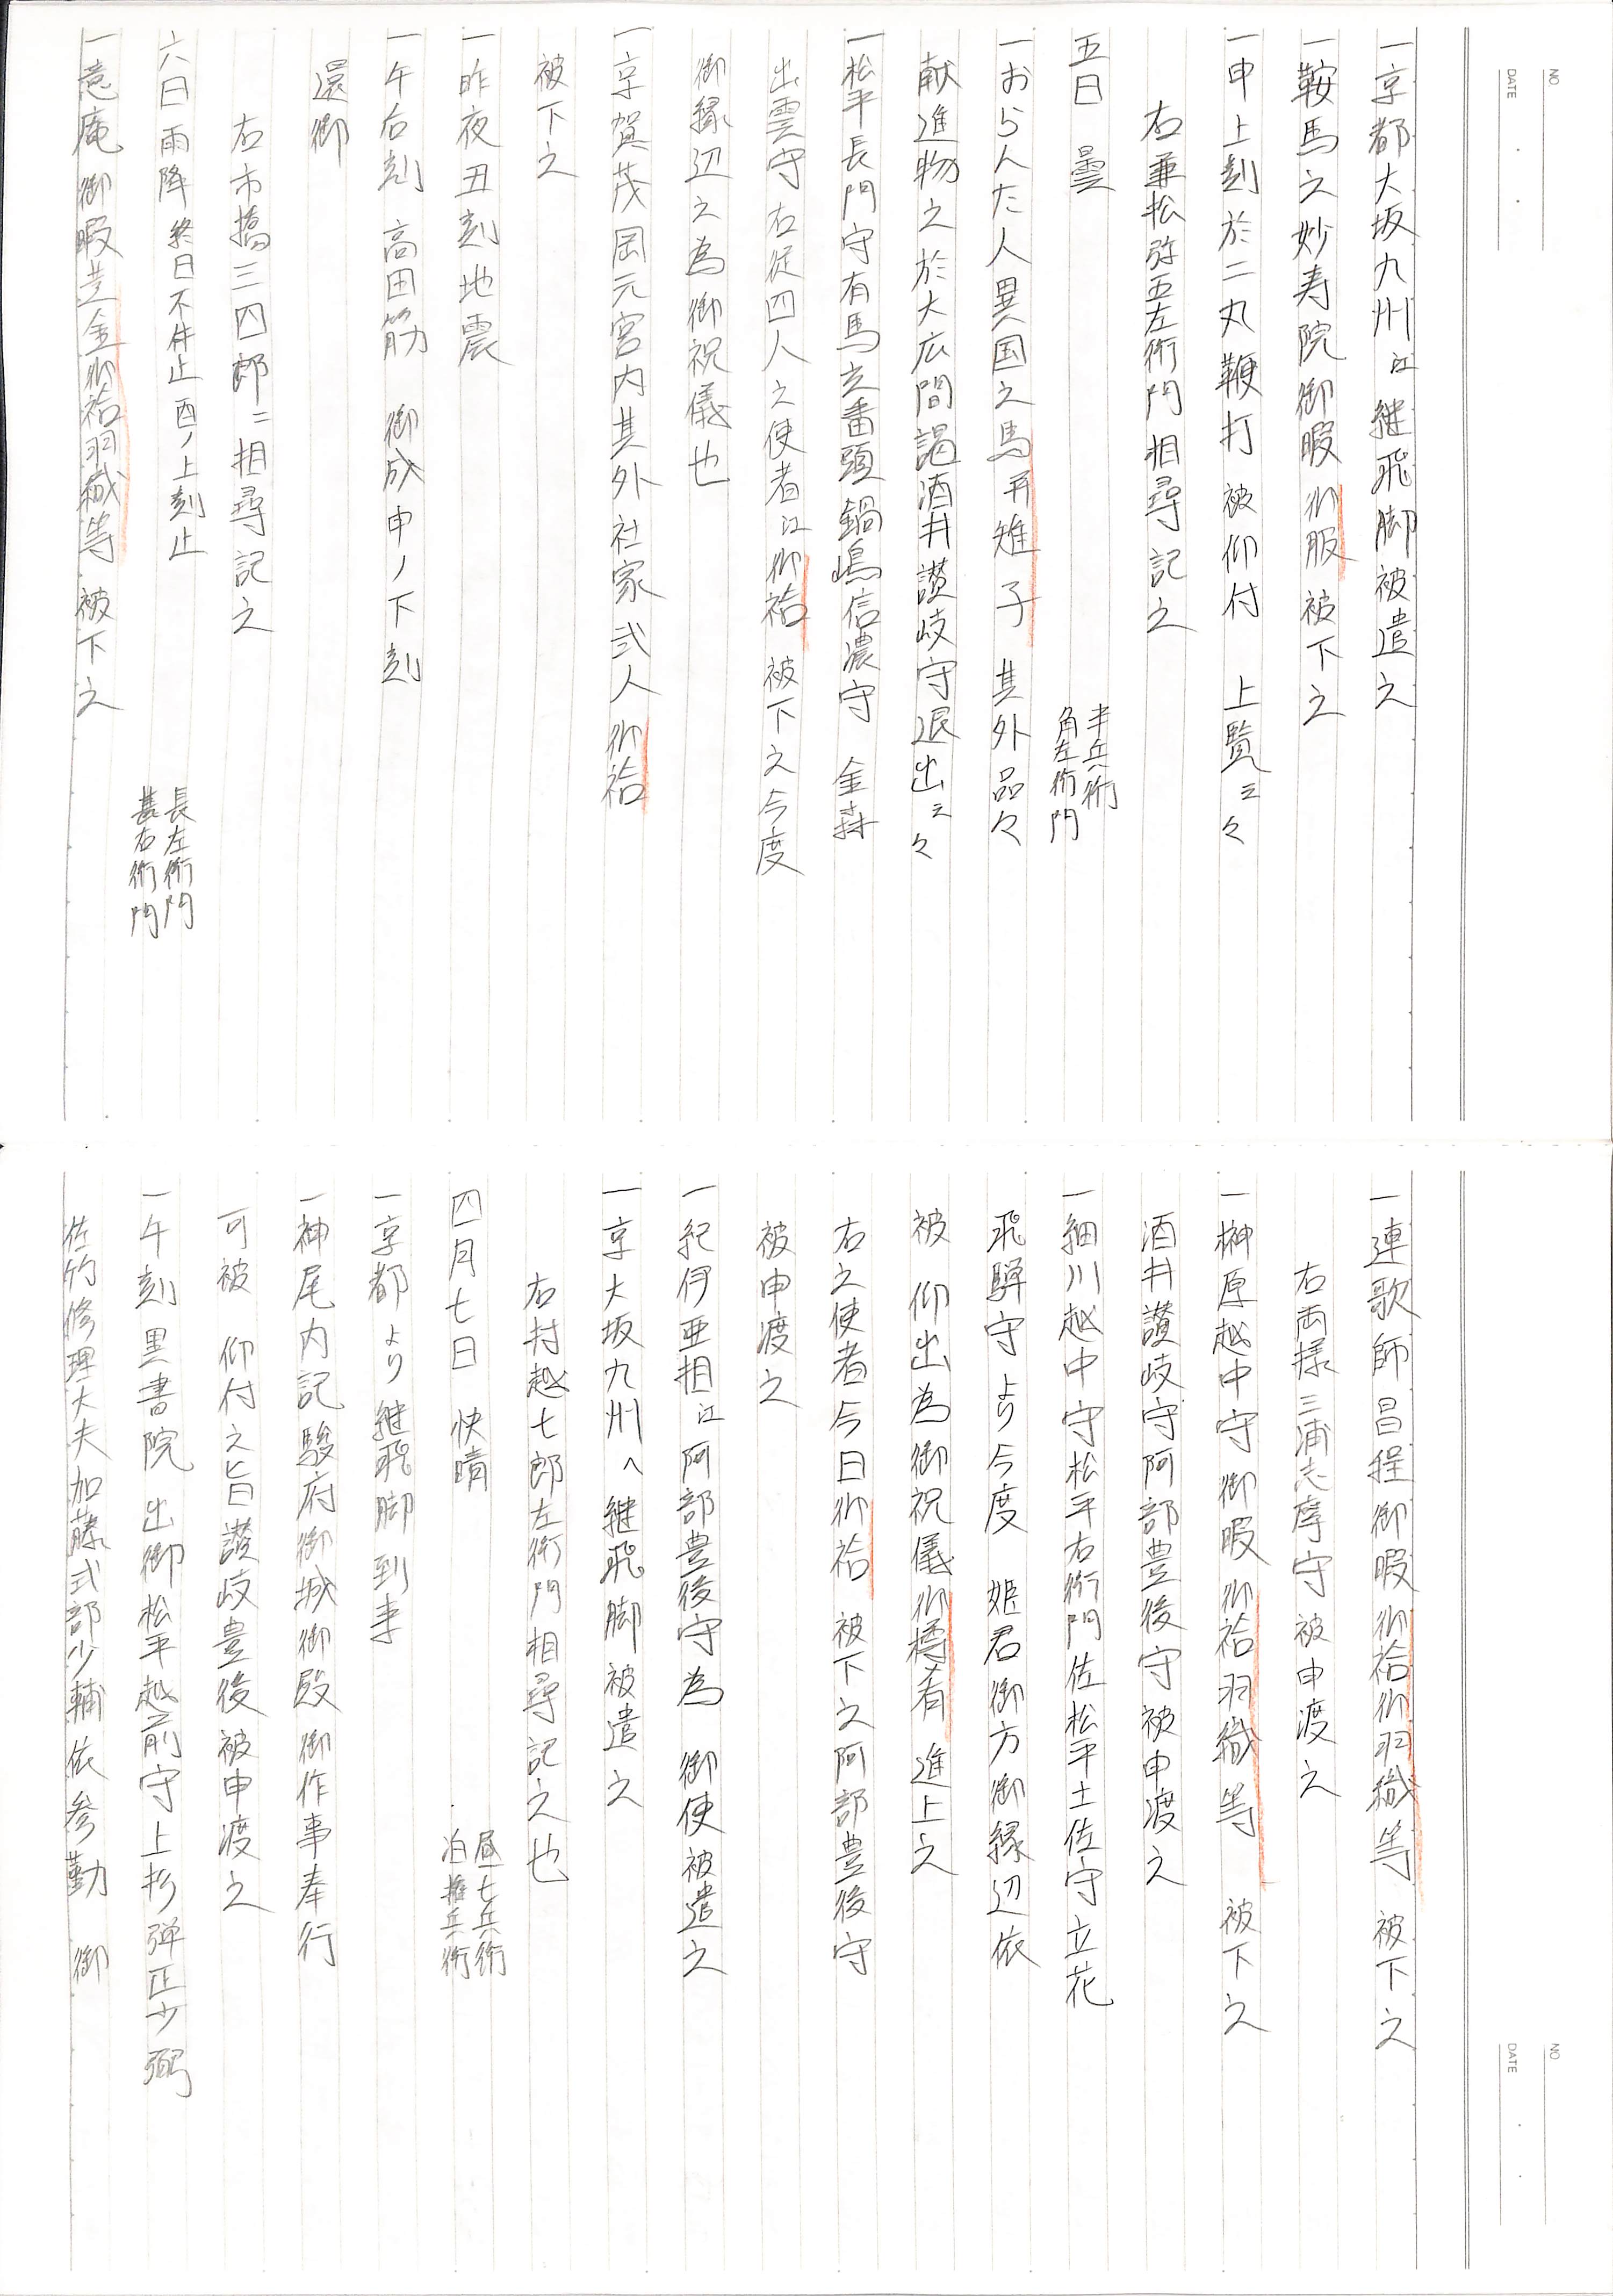 NO
DATE
一京都大坂九州江継飛脚被遣之
一鞍馬之妙寿院御暇御服被下之
一申上刻於二丸鞭打被仰付 上覧云々
右兼松弥五左衛門相尋記之
五日 曇 半兵衛
角左衛門
一おらんた人異国之馬并雉子其外品々
献進物之於大広間謁酒井讃岐守退出云々
一松平長門守有馬玄番頭鍋嶋信濃守 金森
出雲守右従四人之使者江御袷 被下之今度
御縁辺之為御祝儀也
一京賀茂岡元宮内其外社家弐人御袷
被下之
一昨夜丑刻地震
一午右刻 高田筋 御成申ノ下刻
還御
右市橋三四郎ニ相尋記之
六日 雨降 終日不休止酉ノ上刻止 長左衛門
甚右衛門
一意庵御暇芝金御袷羽織等 被下之
NO
DATE
一連歌師昌程御暇御袷御羽織等 被下之
右両様三浦志摩守被申渡之
一榊原越中守御暇御袷羽織等 被下之
酒井讃岐守阿部豊後守被申渡之
一細川越中守松平右衛門佐松平土佐守立花
飛騨守より今度 姫君御方御縁辺依
被 仰出為御祝儀御樽肴進上之
右之使者今日御袷 被下之阿部豊後守
被申渡之
一紀伊亜相江阿部豊後守為 御使被遣之
一京大坂九州へ継飛脚被遣之
右村越七郎左衛門相尋記之也
四月七日 快晴 昼七兵衛
泊権兵衛
一京都より継飛脚到事
一神尾内記駿府御城御殿御作事奉行
可被 仰付之旨讃岐豊後被申渡之
一午刻黒書院 出御松平越前守上杉弾正少弼
佐竹修理大夫加藤式部少輔依参勤 御